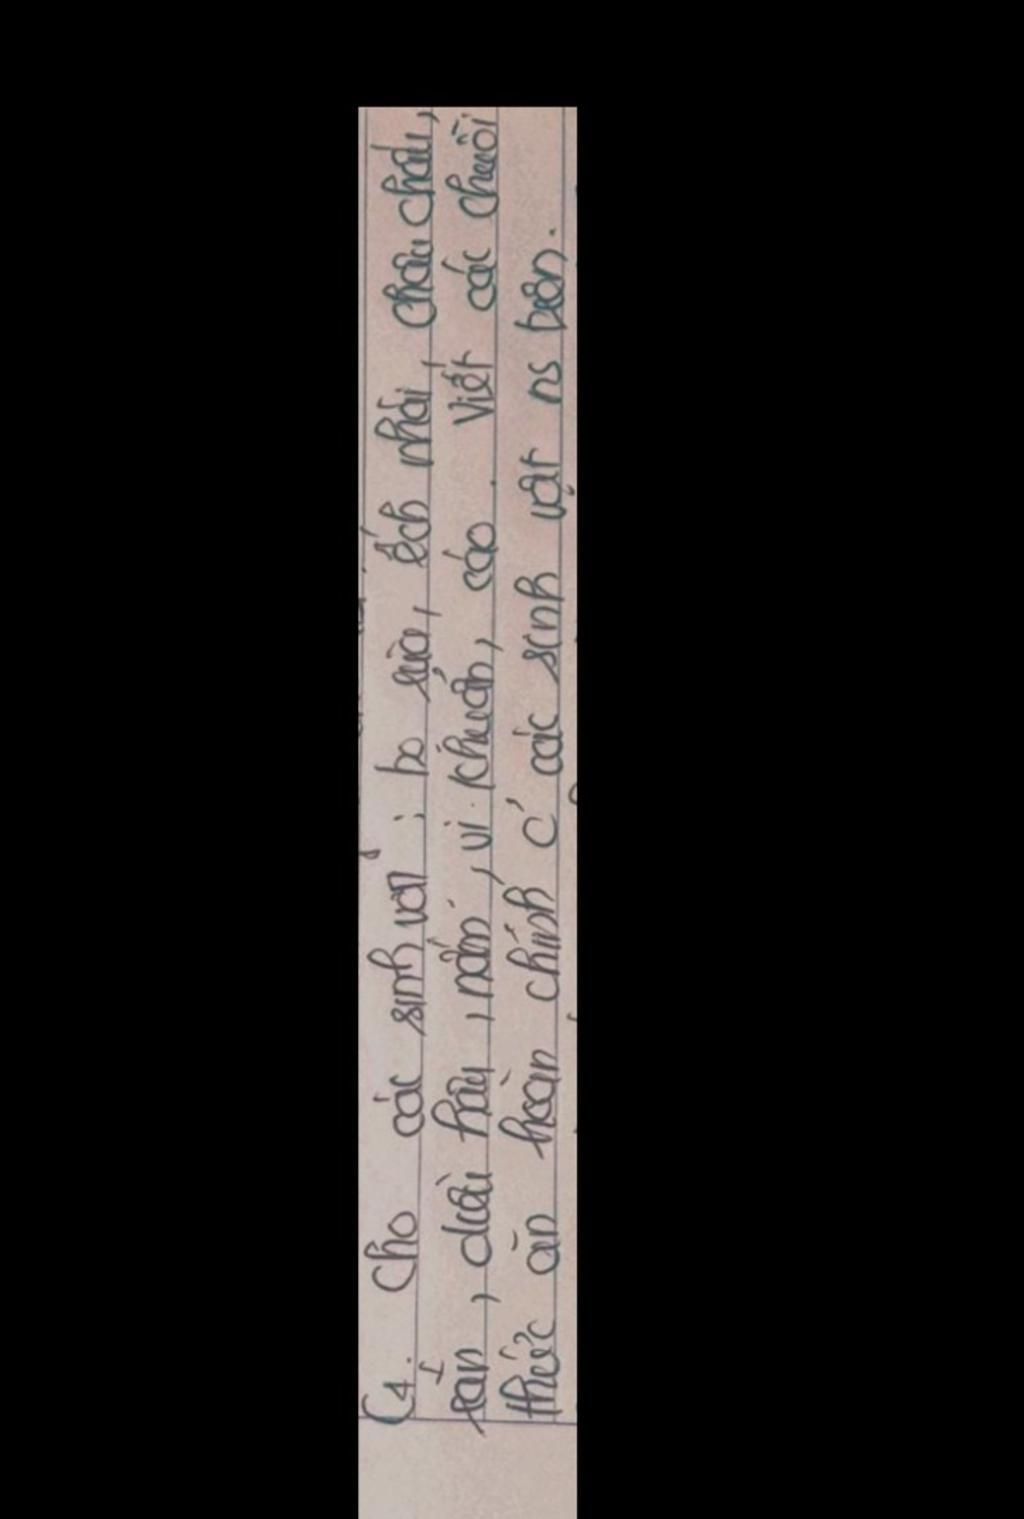 C4. Cho các sinh vật : bo sữa, ếch nhái, châu chấu,
rắn, diều hâu, nấm, vi khuẩn, cáo. Viết các chuỗi
thức ăn hoàn chỉnh c´ các sinh vật ns bên.